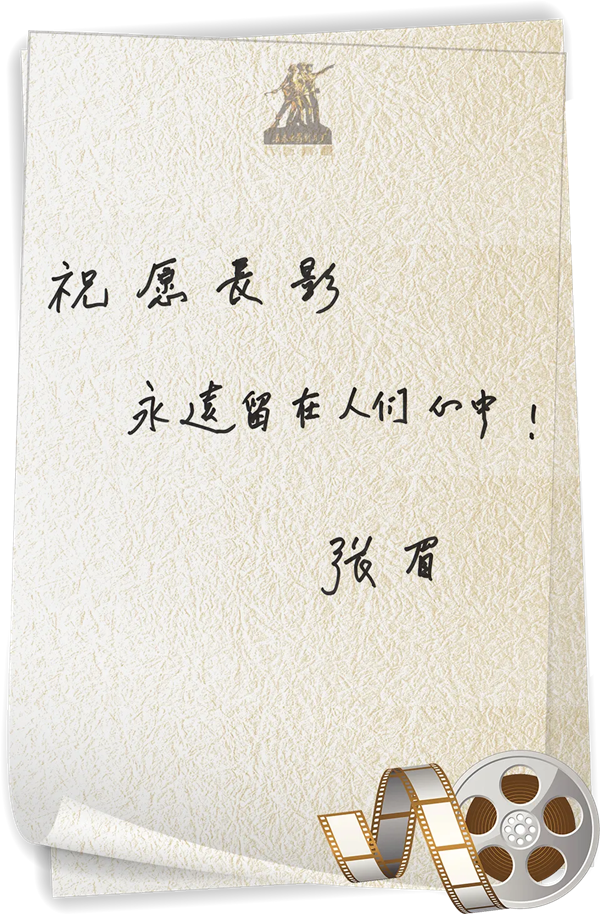 祝愿長影
永遠留在人们心中！
张眉